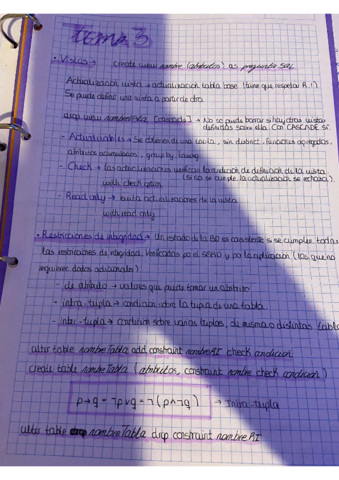 Tema 3
· Vistas → create view nombre (atributos) as pregunta SQL
Actualización vista → actualización tabla base (tiene que respetar R.I.)
Se puede definir una vista a partir de otra
drop view nombre vista [cascade] → No se puede borrar si hay otras vistas
definidas sobre ella. Con CASCADE sí.
- Actualizables → Se obtienen de una tabla, sin distinct, funciones agregadas,
atributos acumulados, group by, having
- Check → las actualizaciones verifican la condición de definición de la vista
with check option (si no se cumple, la actualización se rechaza).
- Read only → evita actualizaciones de la vista
with read only
· Restricciones de integridad → Un estado de la BD es consistente si se cumplen todas
las restricciones de integridad. Verificadas por el SGBD y por la aplicación (las que no
requieren datos adicionales).
- de atributo → valores que puede tomar un atributo
- intra-tupla → condición sobre la tupla de una tabla
- inter-tupla → condición sobre varias tuplas, de misma o distintas tablas
alter table nombreTabla add constraint nombreRI check condicion
create table nombreTabla (atributos, constraint nombre check condicion)
p→q = ¬p∨q = ¬(p∧¬q) → Intra-tupla
alter table nombreTabla drop constraint nombreRI